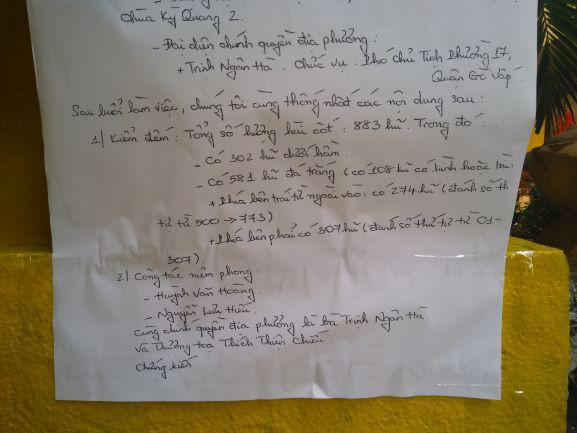 chùa Kỳ Quang 2.
- Đại diện chính quyền địa phương:
+ Trịnh Ngân Hà. Chức vụ. Phó chủ Tịch Phường 17,
Quận Gò Vấp.
Sau buổi làm việc, chúng tôi cùng thống nhất các nội dung sau:
1/ Kiểm đếm: Tổng số lượng hài cốt: 883 hũ. Trong đó:
- Có 302 hũ dưới hầm.
- Có 581 hũ đá trắng. (có 108 hũ có hình hoặc
+ Phía bên trái từ ngoài vào: có 274 hũ (đánh số th
tự từ 500 → 773)
+ Phía bên phải có 307 hũ (đánh số thứ tự từ 01-
307).
2/ Công tác niêm phong:
- Huỳnh Văn Hoàng.
- Nguyễn Lưu Hiếu.
Cùng chính quyền địa phương là bà Trịnh Ngân Hà
và Thượng toạ Thích Thiện Chiếu.
chứng kiến